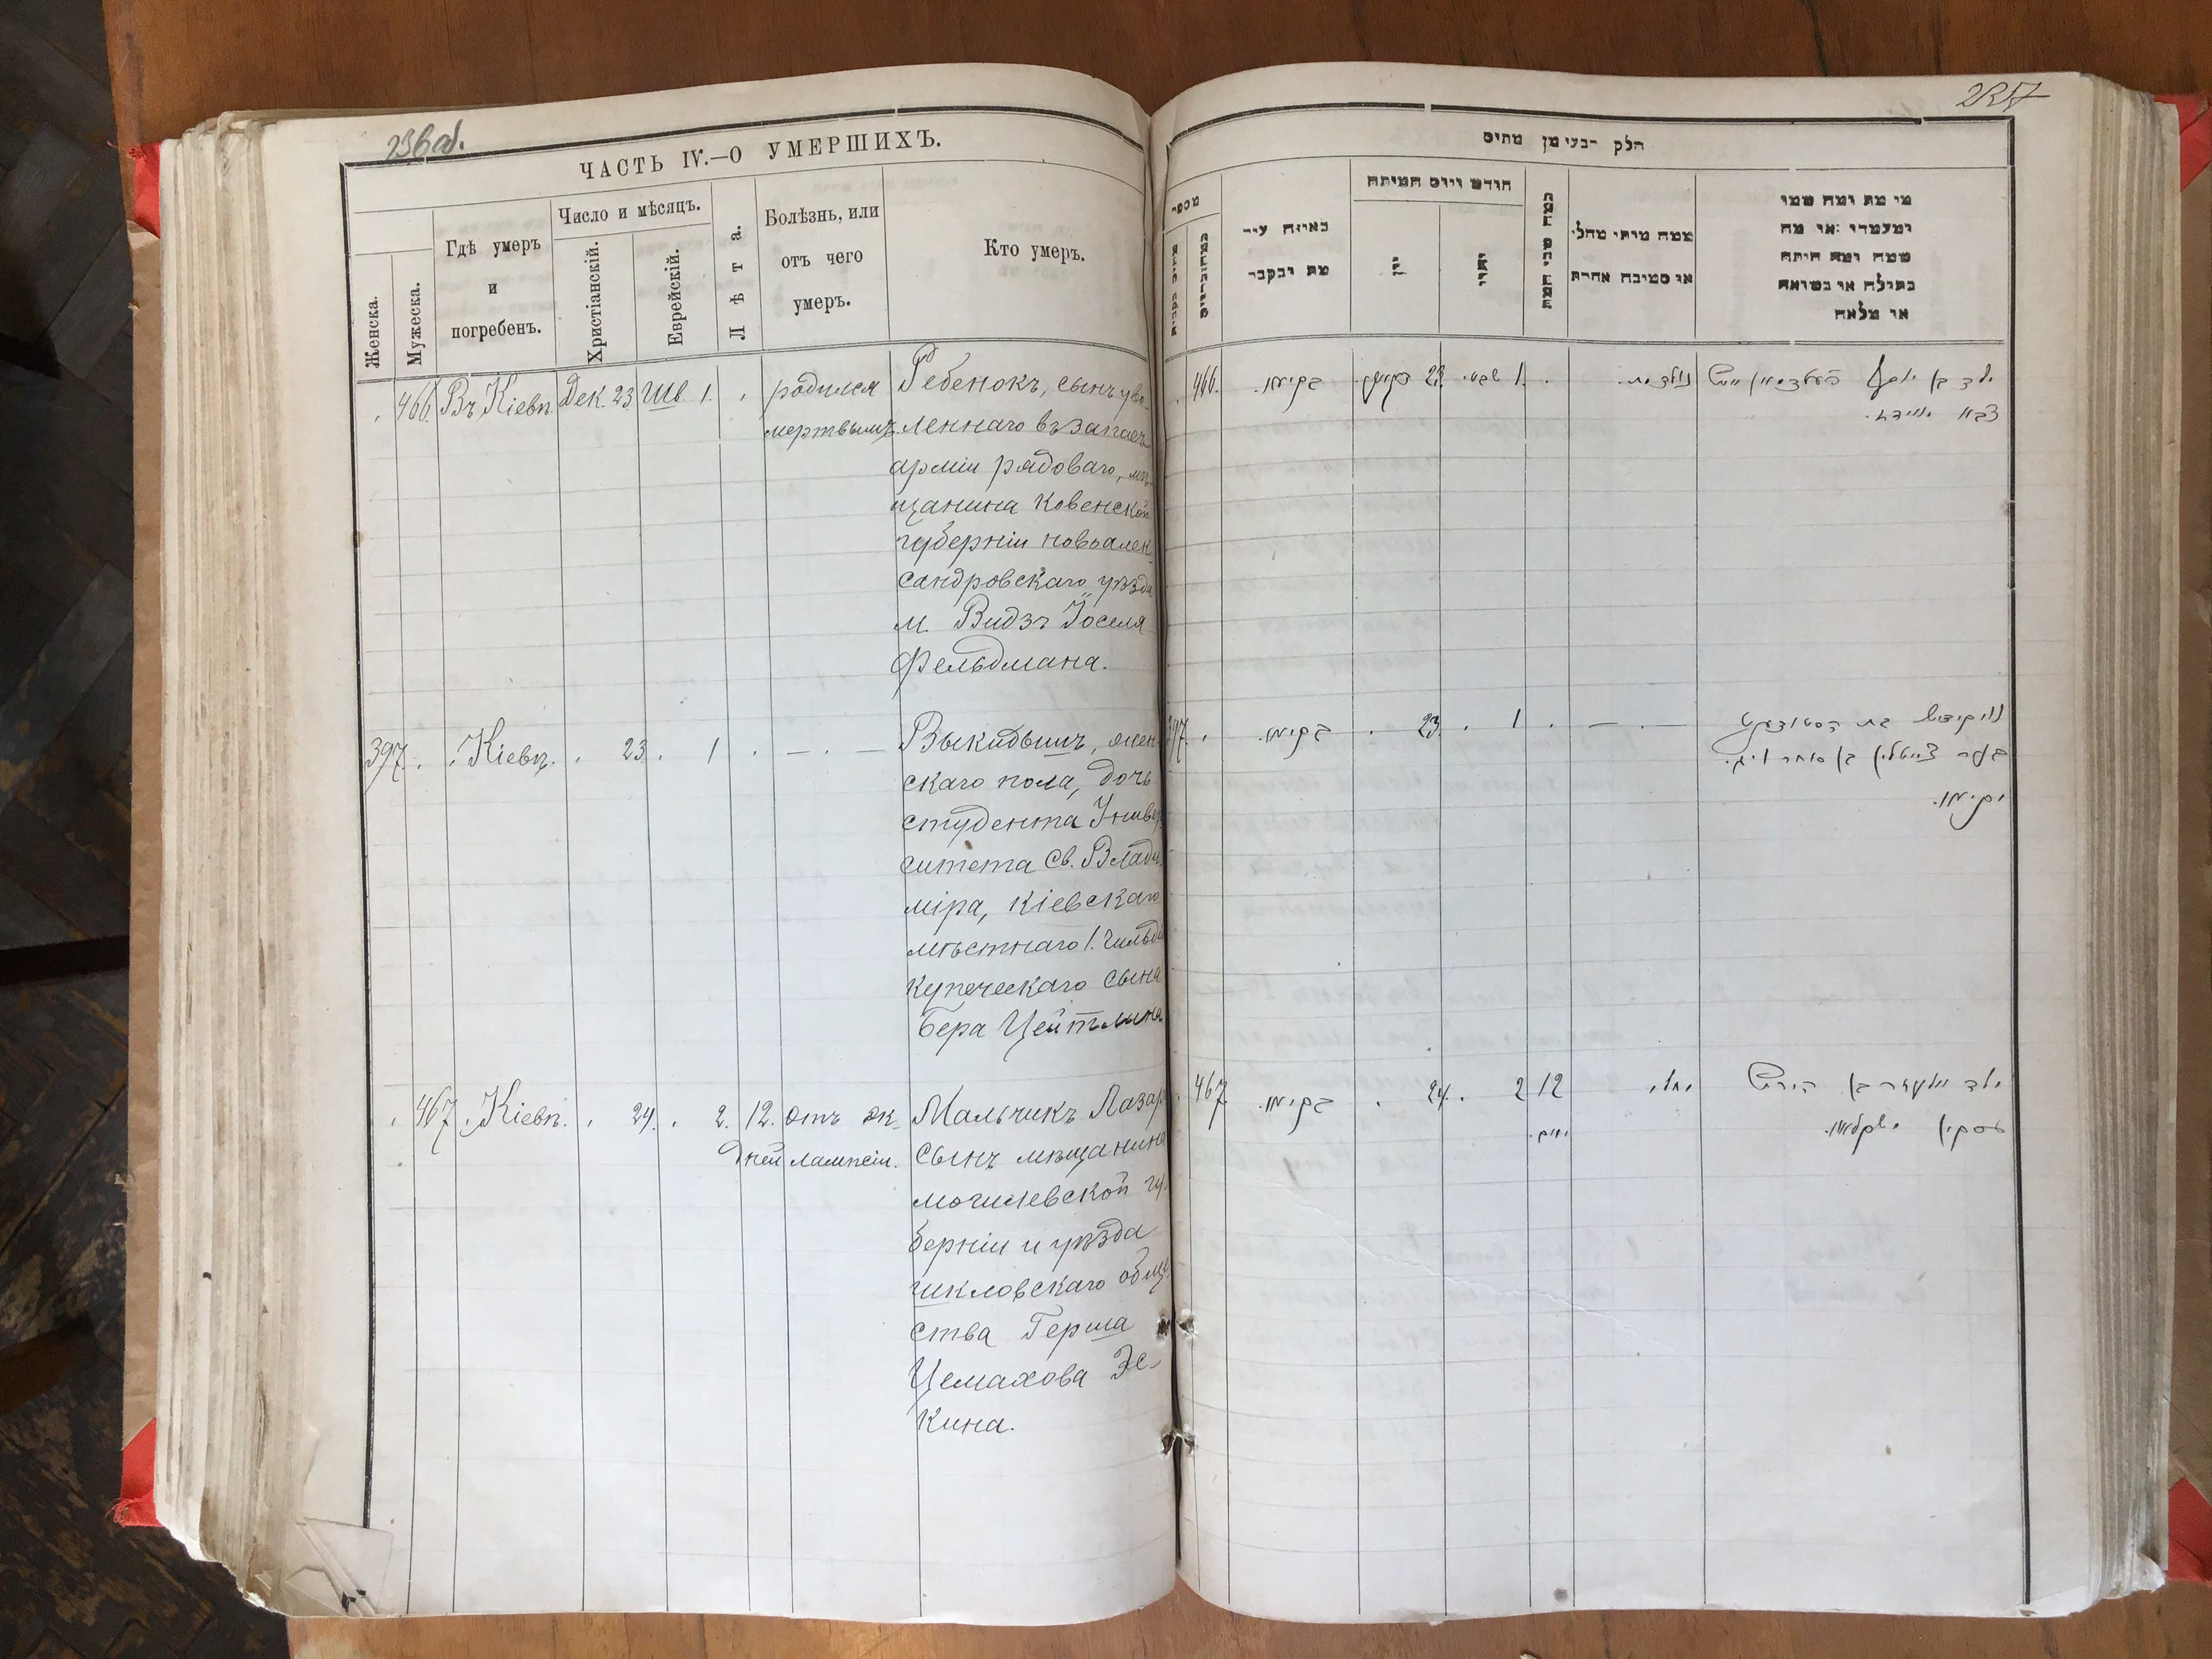 236об.
ЧАСТЬ IV.—О УМЕРШИХЪ.
Женска.
Мужеска.
Гдѣ умеръ
и
погребенъ.
Число и мѣсяцъ.
Христіанскій.
Еврейскій.
Лѣта.
Болѣзнь, или
отъ чего
умеръ.
Кто умеръ.
466. Въ Кіевѣ Дек. 23 Шв. 1. родился
мертвымъ.
Ребенокъ, сынъ уво-
леннаго въ запасъ
арміи рядоваго, мѣ-
щанина Ковенской
губерніи новоалек
сандровскаго уѣзда
м. Видзъ Іоселя
Фельдмана.
397. Кіевѣ. 23. 1 . — . —
Выкидышъ, жен-
скаго пола, дочь
студента Универ
ситета Св. Влади
міра, Кіевскаго
мѣстнаго 1. гильдіи
купеческаго сына
Бера Цейтлина
467 Кіевѣ. 24. 2. 12. отъ эк-
дней лампсіи.
Мальчикъ Лазарь
сынъ мѣщанина
могилевской гу-
берніи и уѣзда
шкловскаго общ
ства Герша
Цемахова Эс-
кина.
237
חלק רבעי מן מתים
מספר
באיזה עיר
מת ונקבר
חודש ויום המיתה
יון
יהודי
כמה שני המת
ממה מיתי מחלי
או מסיבה אחרת
מי מת ומה שמו
ומעמדו או מה
שמה ומה היתה
בתולה או נשואה
או מלאה
466. בקיעוו. 23 1. נולד מת. ילד בן יוסף פעלדמאן איש
צבא ווידז.
397. בקיעוו. 23. 1 . — . בת הסטודענט
בער צייטלין בן סוחר
קיעוו.
467 בקיעוו. 24. 2 12 ימים. חלי ילד אלעזר בן הירש
עסקין שקלאוו.